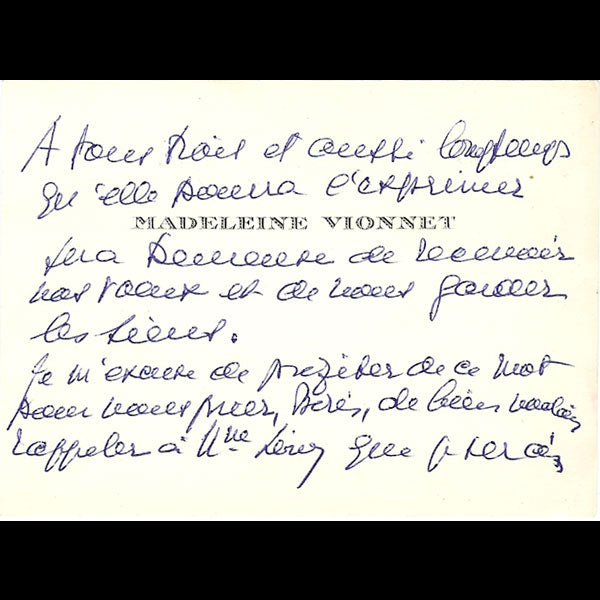 A tous trois et aussi longtemps
qu'elle pourra l'exprimer
MADELEINE VIONNET
sera heureuse de recevoir
vos vœux et de vous garder
les siens.
Je m'excuse de profiter de ce mot
pour vous prier, de bien vouloir
rappeler à Mme que